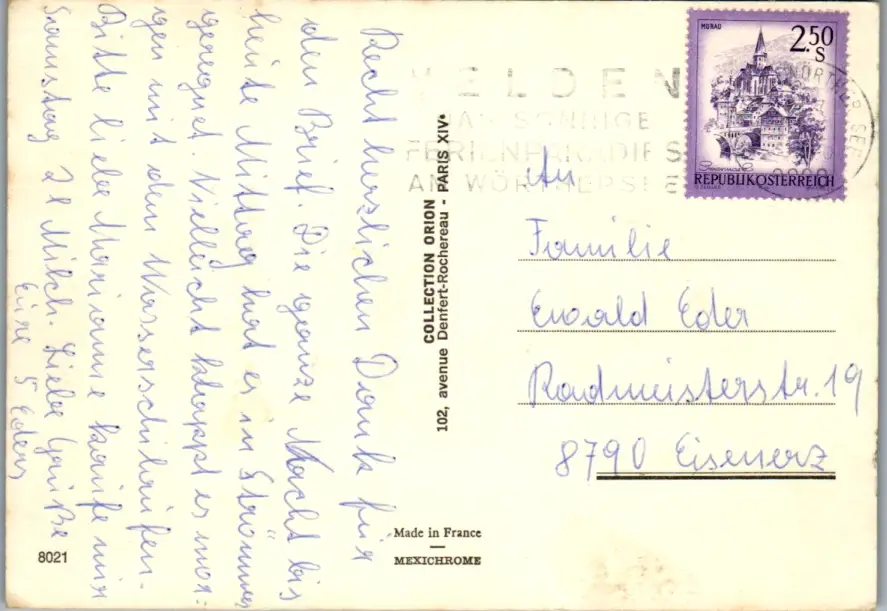 Recht herzlichen Dank für
den Brief. Die ganze Nacht bis
heute Mittag hat es in Strömen
geregnet. Vielleicht klappt es mor-
gen mit den Wasserschilaufen.
Bitte liebe Marianne kaufe mir
Samstag 2 l Milch. Liebe Grüße
Eure 5 Eders
COLLECTION ORION
102, avenue Denfert-Rochereau - PARIS XIV•
MURAU
2.50
S
REPUBLIK ÖSTERREICH
VELDEN
DAS SONNIGE
FERIENPARADIES
AM WÖRTHERSEE
WÖRTHER SEE
An
Familie
Ewald Eder
Radmeisterstr. 19
8790 Eisenerz
Made in France
MEXICHROME
8021